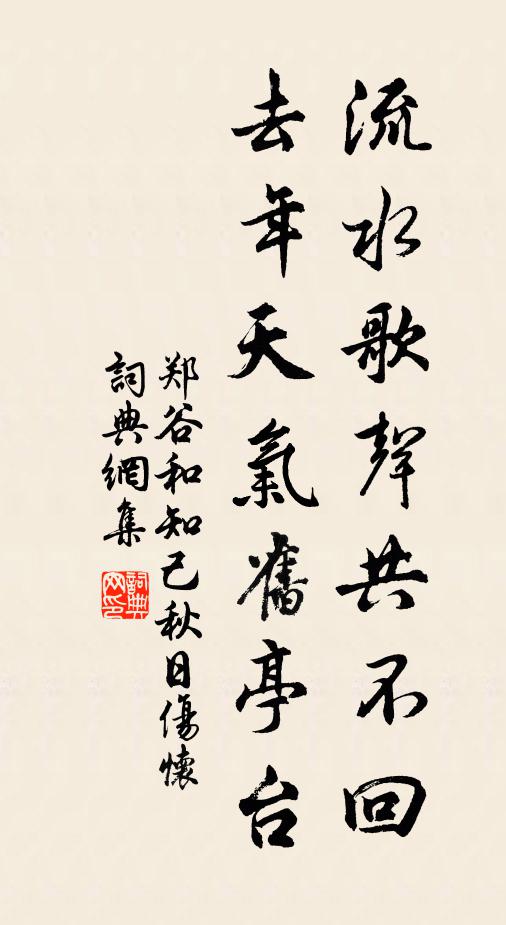 流水歌聲共不回
去年天氣舊亭台
郑谷和知己秋日傷懷
詞典網集
詞典
网印